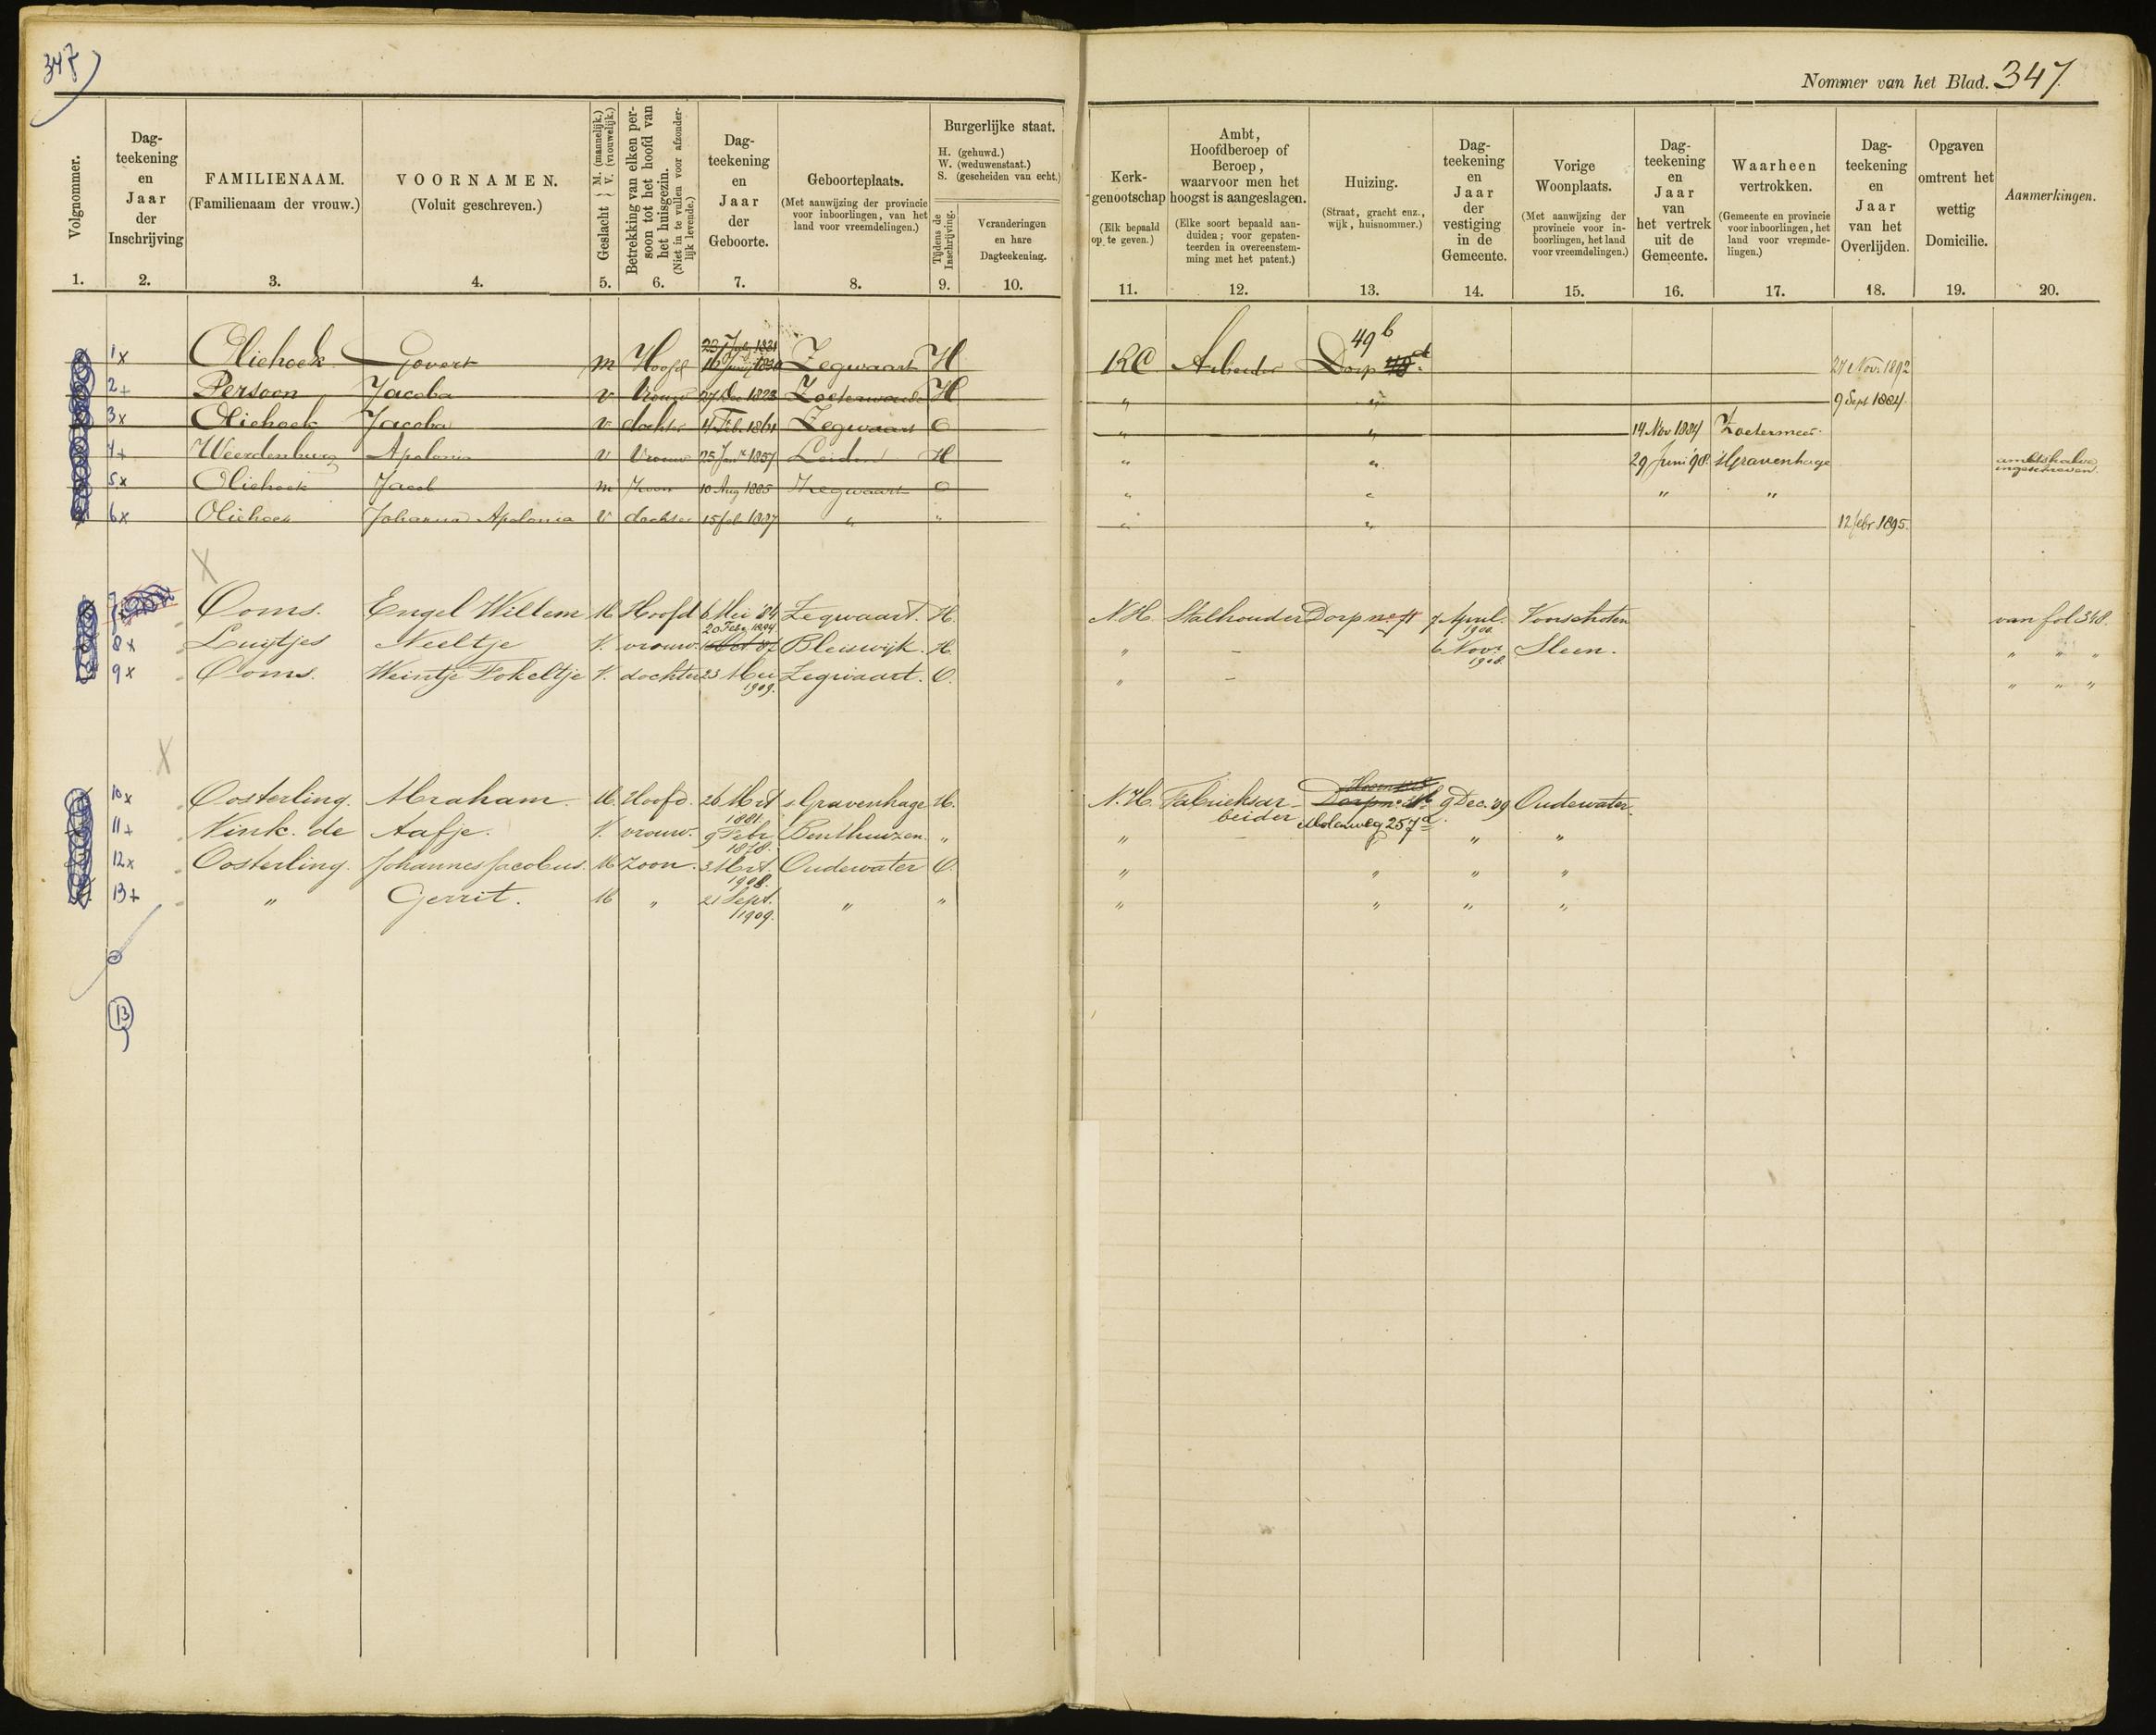 347
Nommer van het Blad. 347.
Volgnommer.
1.
Dag-
teekening
en
Jaar
der
Inschrijving
2.
FAMILIENAAM.
(Familienaam der vrouw.)
3.
VOORNAMEN.
(Voluit geschreven.)
4.
Geslacht } M. (mannelijk.) V. (vrouwelijk.)
5.
Betrekking van elken per-
soon tot het hoofd van
het huisgezin.
(Niet in te vullen voor afzonder-
lijk levende.)
6.
Dag-
teekening
en
Jaar
der
Geboorte.
7.
Geboorteplaats.
(Met aanwijzing der provincie
voor inboorlingen, van het
land voor vreemdelingen.)
8.
Burgerlijke staat.
H. (gehuwd.)
W. (weduwenstaat.)
S. (gescheiden van echt.)
Tijdens de
Inschrijving.
9.
Veranderingen
en hare
Dagteekening.
10.
Kerk-
genootschap
(Elk bepaald
op te geven.)
11.
Ambt,
Hoofdberoep of
Beroep,
waarvoor men het
hoogst is aangeslagen.
(Elke soort bepaald aan-
duiden; voor gepaten-
teerden in overeenstem-
ming met het patent.)
12.
Huizing.
(Straat, gracht enz.,
wijk, huisnommer.)
13.
Dag-
teekening
en
Jaar
der
vestiging
in de
Gemeente.
14.
Vorige
Woonplaats.
(Met aanwijzing der
provincie voor in-
boorlingen, het land
voor vreemdelingen.)
15.
Dag-
teekening
en
Jaar
van
het vertrek
uit de
Gemeente.
16.
Waarheen
vertrokken.
(Gemeente en provincie
voor inboorlingen, het
land voor vreemde-
lingen.)
17.
Dag-
teekening
en
Jaar
van het
Overlijden.
18.
Opgaven
omtrent het
wettig
Domicilie.
19.
Aanmerkingen.
20.
1x Oliehoek Govert m Hoofd Zegwaart H RC Arbeider Dorp 49b 27 Nov. 1892
2+ Persoon Jacoba v Vrouw 27 Dec 1823 Zoeterwoude H " " 9 Sept 1884
3x Oliehoek Jacoba v dochter 4 Feb. 1861 Zegwaart O " " 14 Nov 1884 Zoetermeer
4+ Weerdenburg Apolonia v Vrouw 25 Jan 1857 Leiden H " " 29 Juni 98 sGravenhage ambtshalve ingeschreven.
5x Oliehoek Jacob m Zoon 10 Aug 1885 Zegwaart O " " " "
6x Oliehoek Johanna Apolonia v dochter 15 feb 1887 " " " " 12 febr 1895.
7 Ooms. Engel Willem M. Hoofd 6 Mei '84 Zegwaart. H. N.H. Stalhouder Dorp 7 April 1900 Voorschoten van fol 348.
8x Luijtjes Neeltje V. vrouw. 20 Febr 1884 Bleiswijk. H. " - 6 Nov. 1908. Sleen. " " "
9x Ooms. Weintje Fokeltje V. dochter 23 Mei 1909. Zegwaart. O. " - " " "
10x Oosterling. Abraham. M. Hoofd. 26 Mrt 1881. sGravenhage H. N.H. Fabrieksar-
beider Molenweg 257a 9 Dec. '09 Oudewater.
11+ Vink. de Aafje. V. vrouw. 9 Febr 1878. Benthuizen. " " " " "
12x Oosterling. Johannes Jacobus. M zoon. 3 Mrt 1908. Oudewater O. " " " "
13+ " Gerrit. M " 21 Sept. 1909. " " " " " "
13